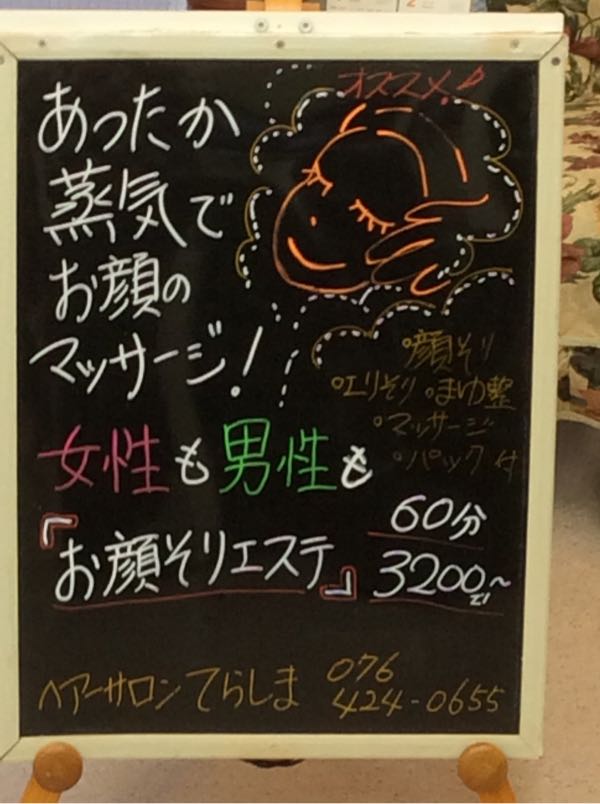 オススメ♪
あったか
蒸気で
お顔の
マッサージ!
°顔そり
°エリそり °まゆ整
°マッサージ
°パック付
女性も男性も
『お顔そりエステ』
60分
3200〜
ヘアーサロンてらしま
076
424-0655